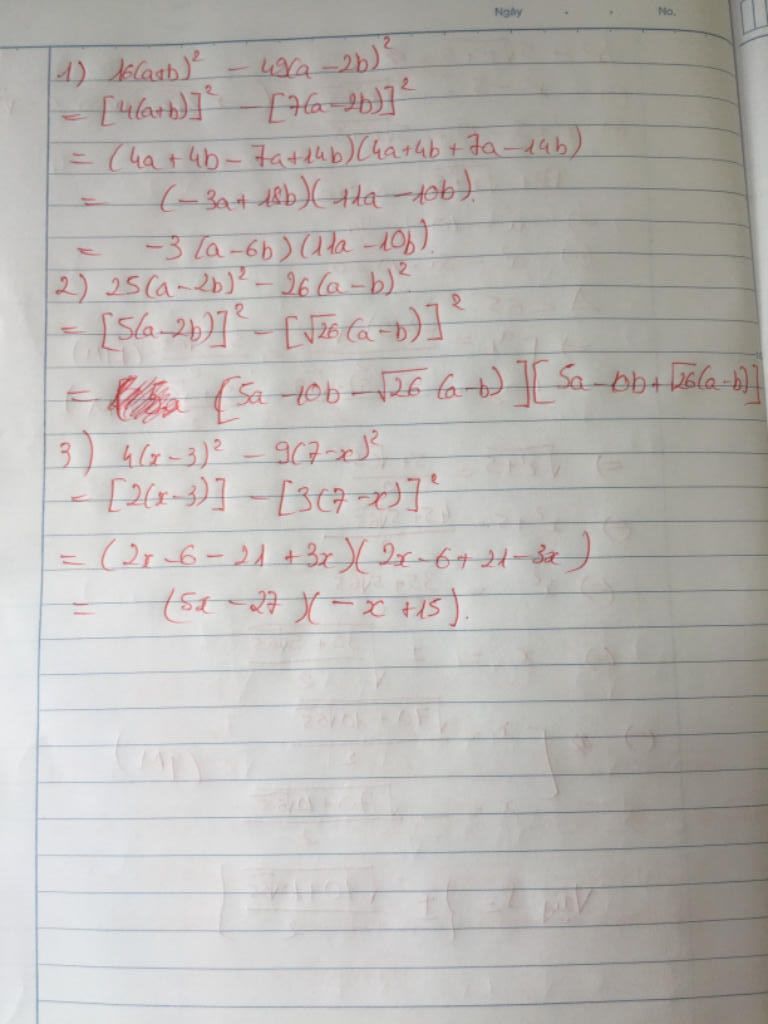 Ngày . . No.
1) 16(a+b)² - 49(a-2b)²
= [4(a+b)]² - [7(a-2b)]²
= (4a+4b-7a+14b)(4a+4b+7a-14b)
= (-3a+18b)(11a-10b).
= -3(a-6b)(11a-10b).
2) 25(a-2b)² - 26(a-b)²
= [5(a-2b)]² - [√26(a-b)]²
= [5a-10b-√26(a-b)][5a-10b+√26(a-b)]
3) 4(x-3)² - 9(7-x)²
= [2(x-3)] - [3(7-x)]²
= (2x-6-21+3x)(2x-6+21-3x)
= (5x-27)(-x+15).